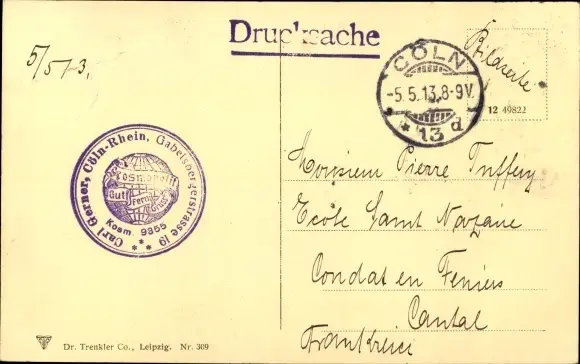 5/5 13.
Drucksache
CÖLN
-5.5.13.8-9V.
* 13 d
Bildseite
12 49822
Carl Gerner, Cöln-Rhein, Gabelsbergerstrasse 19
Kosmopolit
Gut Fernruf Gruss
Kosm. 9355
* * *
Monsieur Pierre Tuffery
Ecole Saint Nazaire
Condat en Feniers
Cantal
Frankreich
Dr. Trenkler Co., Leipzig. Nr. 309